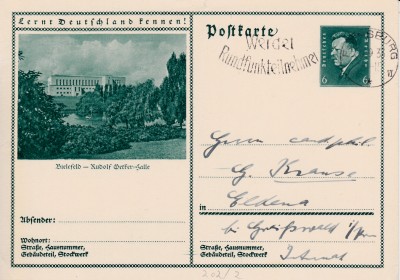 Lernt Deutschland kennen!
Bielefeld — Rudolf Oetker-Halle
Absender:
Wohnort:
Straße, Hausnummer,
Gebäudeteil, Stockwerk
Postkarte
Werdet
Rundfunkteilnehmer
BURG
Deutsches Reich
6 6
Herrn cand. phil.
G. Krause
in Eldena
b. Greifswald i/Pom
Straße, Hausnummer,
Gebäudeteil, Stockwerk